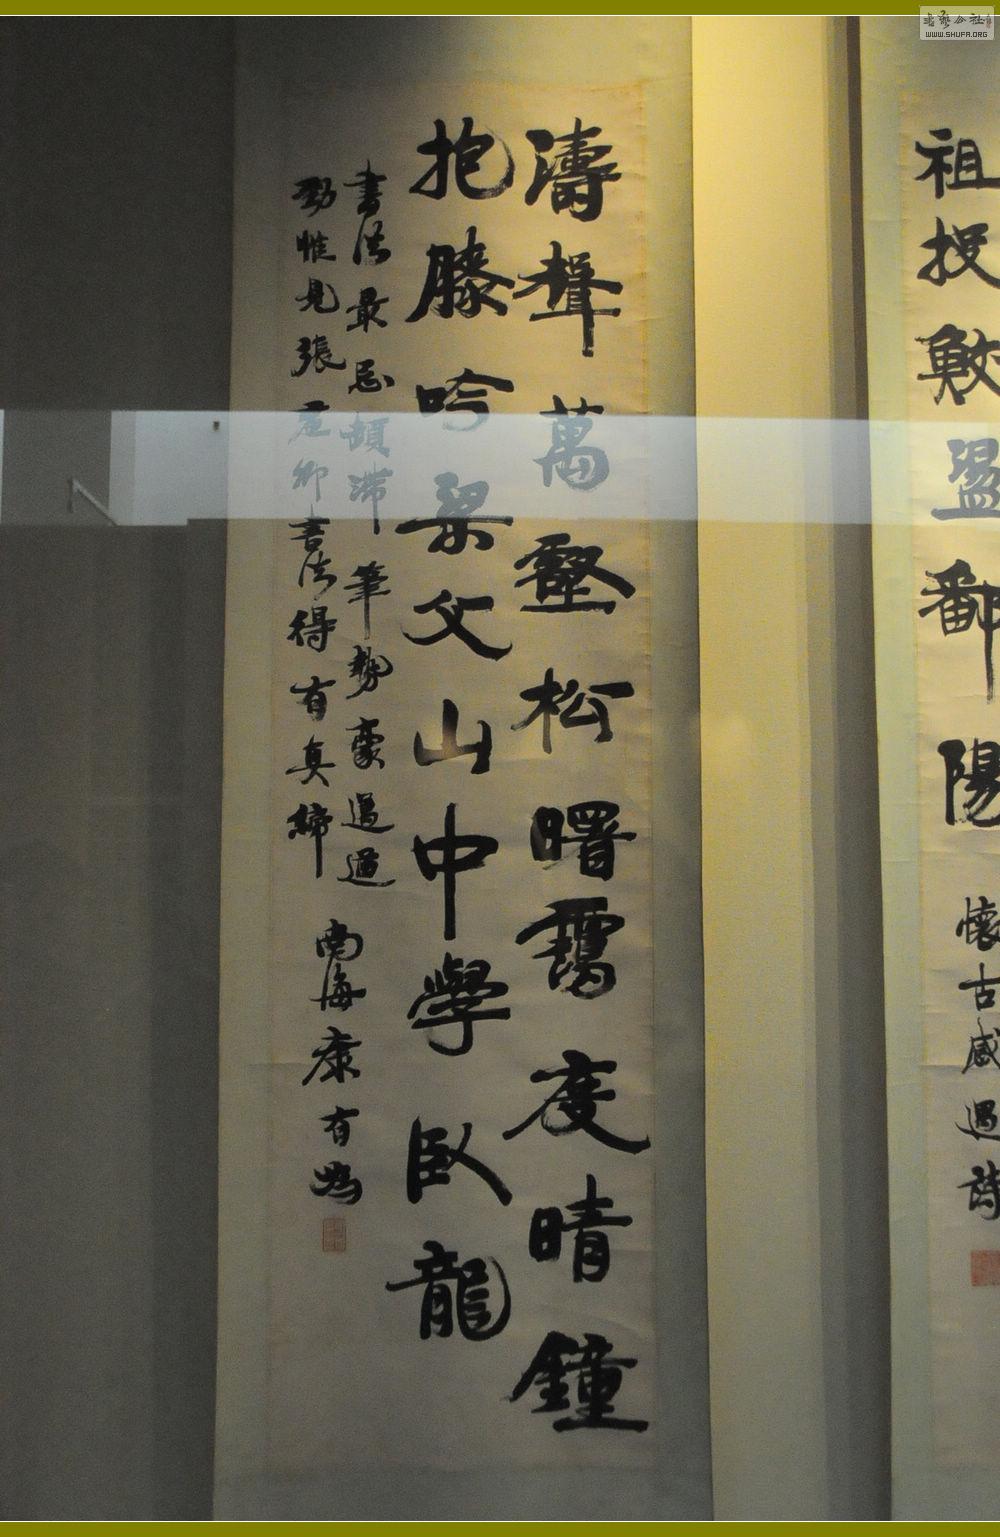 祖投敷盪鄱陽
懷古感遇詩
濤聲萬壑松曙靄度晴鐘
抱膝吟梁父山中學臥龍
書法最忌頓滯筆勢豪邁遒
勁惟見張廉卿書法得有真締
南海康有為
書藝公社
WWW.SHUFA.ORG